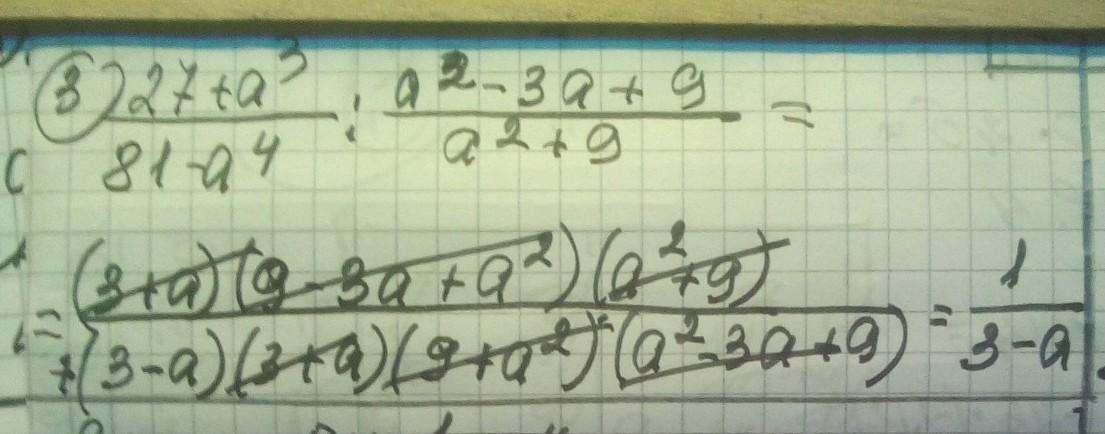 3) (27+a³)/(81-a⁴) : (a²-3a+9)/(a²+9) =
= ((3+a)(9-3a+a²)(a²+9))/((3-a)(3+a)(9+a²)·(a²-3a+9)) = 1/(3-a)